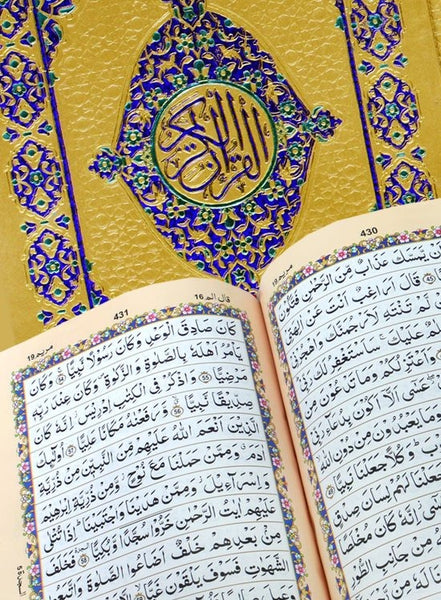 القرآن الكريم
430
مريم 19
يَّمَسَّكَ عَذَابٌ مِّنَ الرَّحْمٰنِ فَتَكُوْنَ
45 قَالَ اَرَاغِبٌ اَنْتَ عَنْ
لَمْ تَنْتَهِ لَاَرْجُمَنَّكَ وَاهْجُرْنِيْ
عَلَيْكَ سَاَسْتَغْفِرُ لَكَ
وَاَعْتَزِلُكُمْ وَمَا تَدْعُوْنَ مِنْ
عَسٰٓى اَلَّآ اَكُوْنَ بِدُعَآءِ رَبِّيْ
يَعْبُدُوْنَ مِنْ دُوْنِ اللّٰهِ
وَكُلًّا جَعَلْنَا نَبِيًّا
جَعَلْنَا لَهُمْ لِسَانَ صِدْقٍ
اِنَّهٗ كَانَ مُخْلَصًا
مِنْ جَانِبِ الطُّوْرِ
قال الم 16
431
مريم 19
كَانَ صَادِقَ الْوَعْدِ وَكَانَ رَسُوْلًا نَّبِيًّا 54 وَكَانَ
يَاْمُرُ اَهْلَهٗ بِالصَّلٰوةِ وَالزَّكٰوةِ وَكَانَ عِنْدَ رَبِّهٖ
مَرْضِيًّا 55 وَاذْكُرْ فِي الْكِتٰبِ اِدْرِيْسَ اِنَّهٗ كَانَ
صِدِّيْقًا نَّبِيًّا 56 وَّرَفَعْنٰهُ مَكَانًا عَلِيًّا 57 اُولٰٓئِكَ
الَّذِيْنَ اَنْعَمَ اللّٰهُ عَلَيْهِمْ مِّنَ النَّبِيّٖنَ مِنْ ذُرِّيَّةِ
اٰدَمَ وَمِمَّنْ حَمَلْنَا مَعَ نُوْحٍ وَّمِنْ ذُرِّيَّةِ اِبْرٰهِيْمَ
وَاِسْرَآءِيْلَ وَمِمَّنْ هَدَيْنَا وَاجْتَبَيْنَا اِذَا تُتْلٰى
عَلَيْهِمْ اٰيٰتُ الرَّحْمٰنِ خَرُّوْا سُجَّدًا وَّبُكِيًّا 58 فَخَلَفَ
مِنْۢ بَعْدِهِمْ خَلْفٌ اَضَاعُوا الصَّلٰوةَ وَاتَّبَعُوا
الشَّهَوٰتِ فَسَوْفَ يَلْقَوْنَ غَيًّا 59
السجدة 5